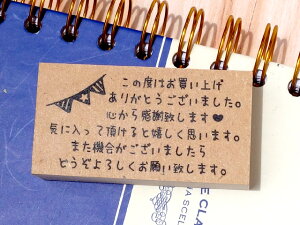 この度はお買い上げ
ありがとうございました。
心から感謝致します♥
気に入って頂けると嬉しく思います。
また機会がございましたら
どうぞよろしくお願い致します。
E CLA
A SCEL